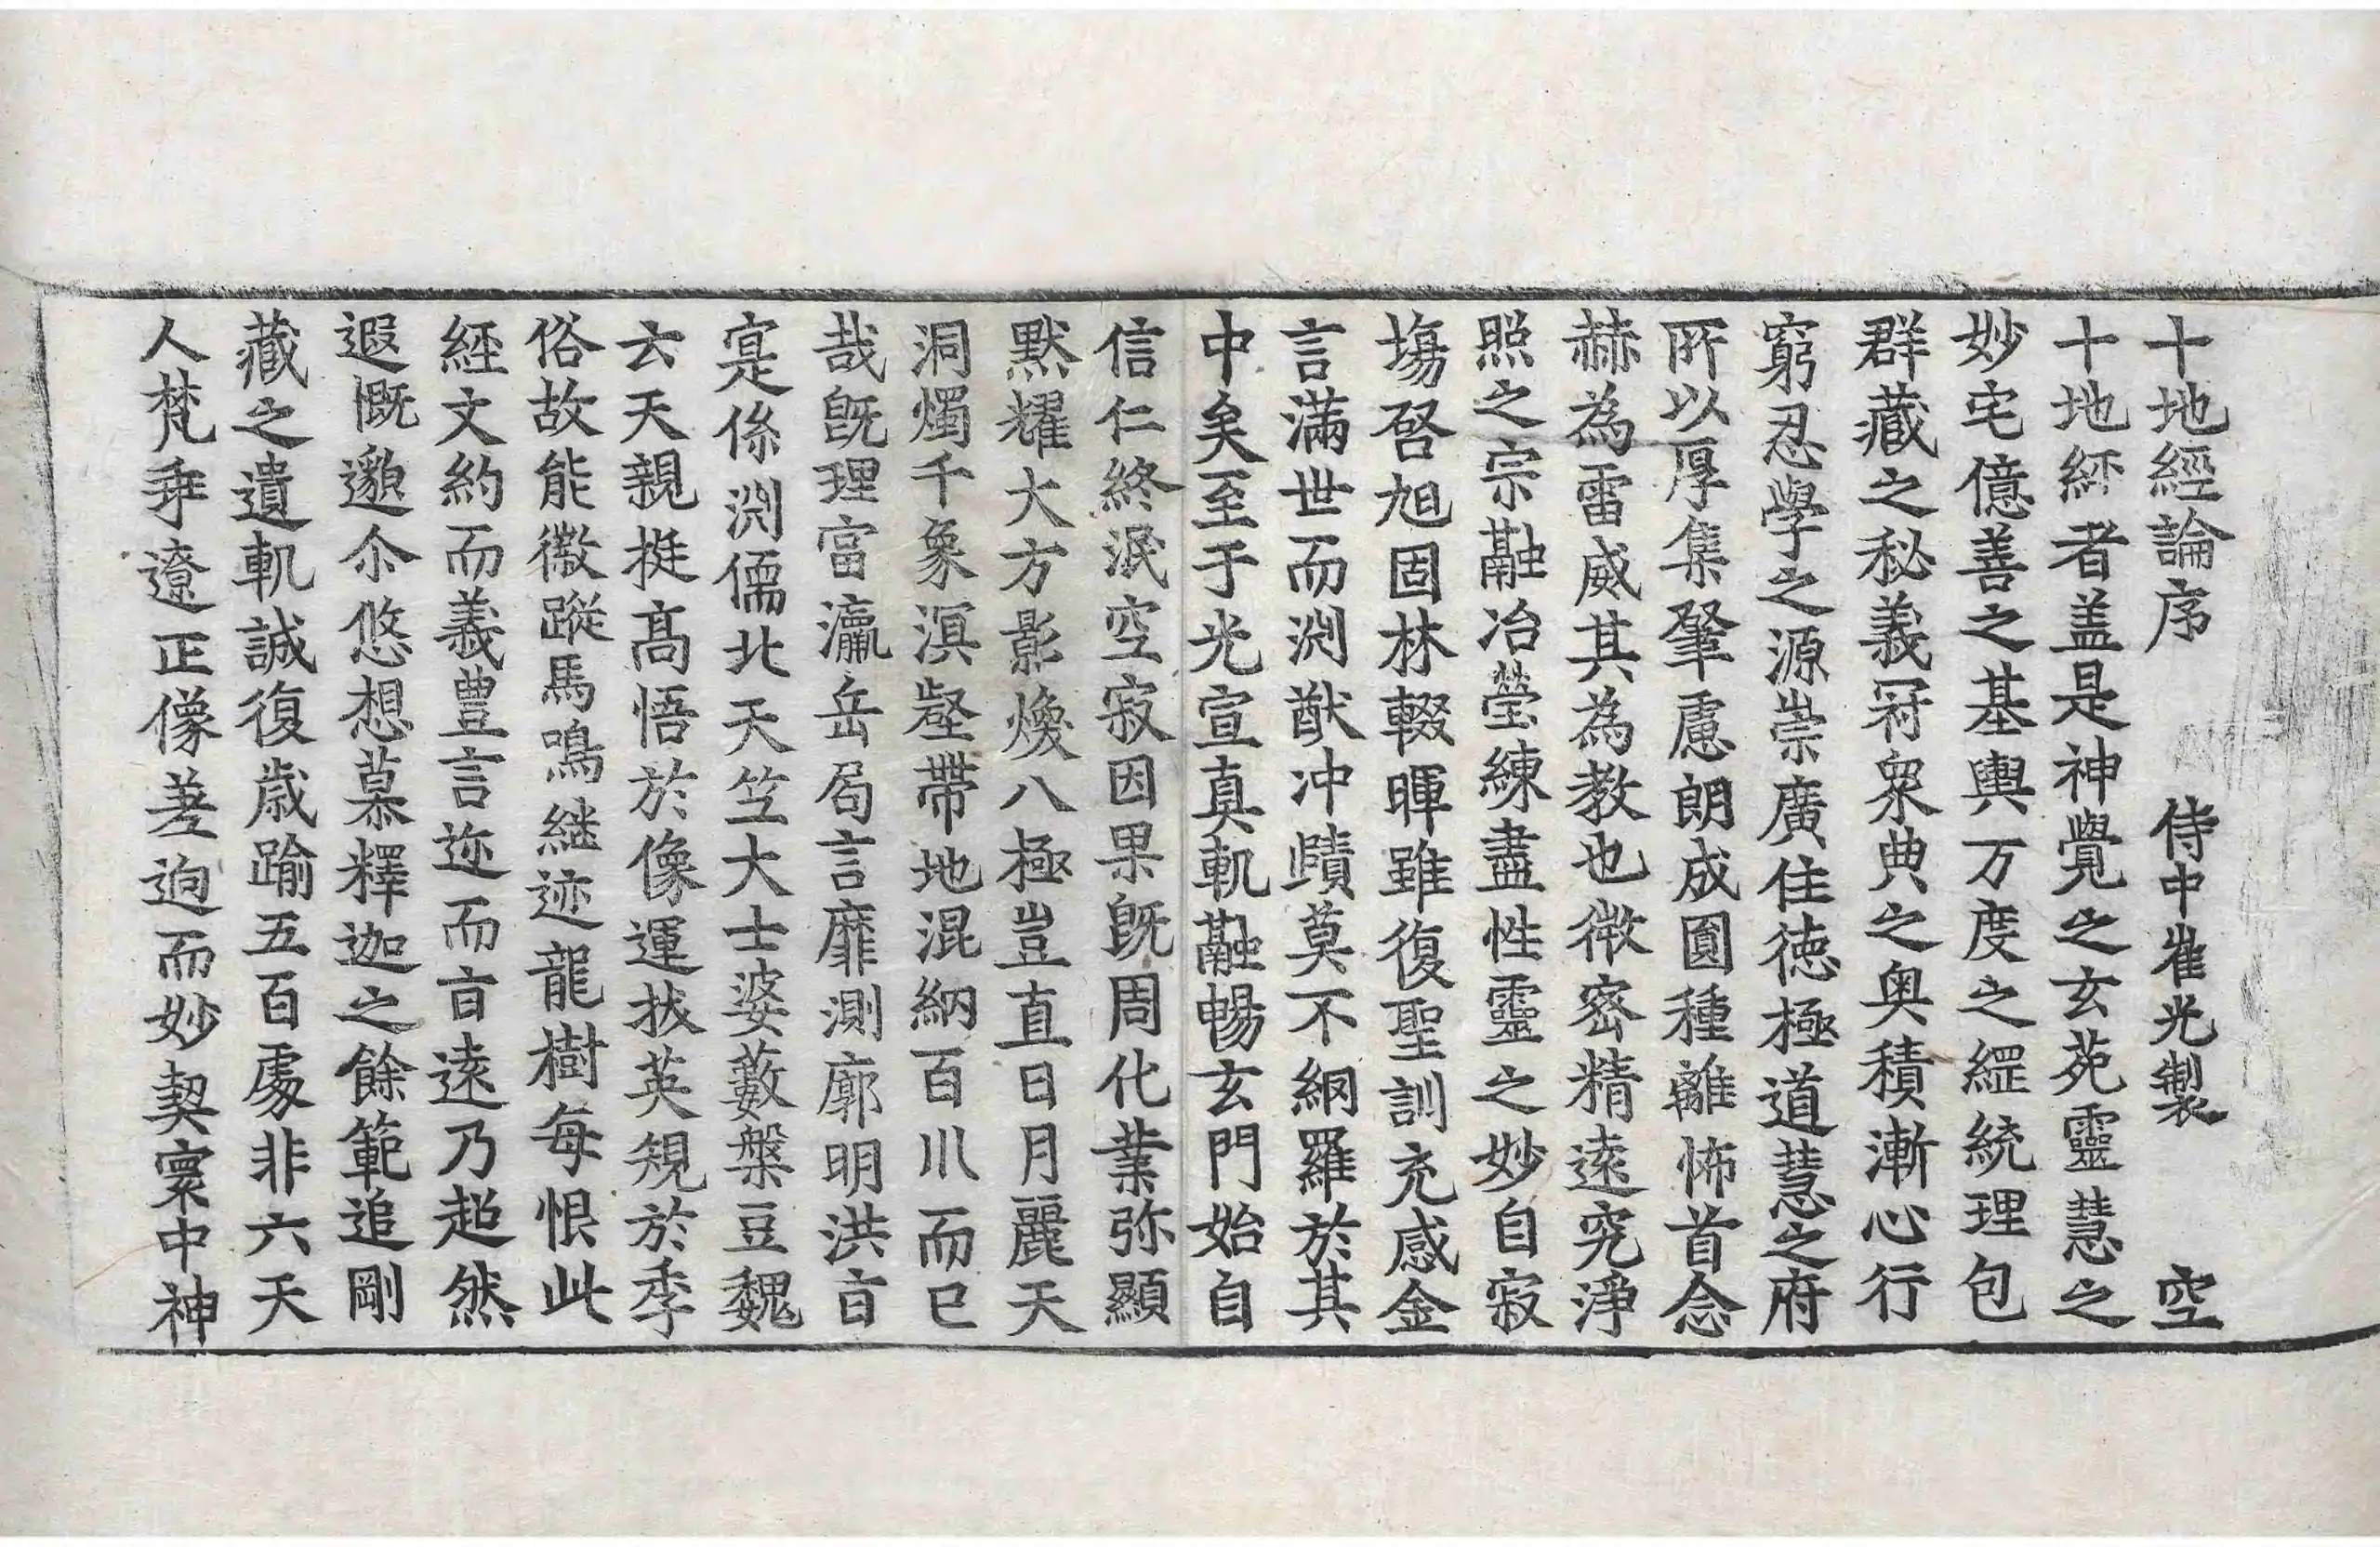 十地經論序 侍中崔光製 空
十地經者盖是神覺之玄苑靈慧之
妙宅億善之基輿万度之綛統理包
群藏之秘義冠衆典之奥積漸心行
窮忍學之源崇廣住徳極道慧之府
所以厚集肇慮朗成圎種離怖首念
赫為雷威其為教也微密精遠究淨
照之宗融冶瑩練盡性靈之妙自寂
塲啓旭固林輟暉雖復聖訓充感金
言滿世而渕猷冲賾莫不網羅於其
中矣至于光宣真軌融暢玄門始自
信仁終泯空寂因果旣周化業弥顯
黙耀大方影煥八極豈直日月麗天
洞燭千象溟壑帶地混納百川而已
哉旣理富瀛岳局言靡測廓明洪㫖
寔係渕儒北天笁大士婆藪槃豆魏
云天親挺髙悟於像運拔英規於季
俗故能徽蹤馬鳴継迹龍樹每恨此
經文約而義豊言迩而㫖遠乃超然
遐慨邈尒悠想慕釋迦之餘範追剛
藏之遺軌誠復歳踰五百處非六天
人梵乖遼正像差逈而妙契寰中神